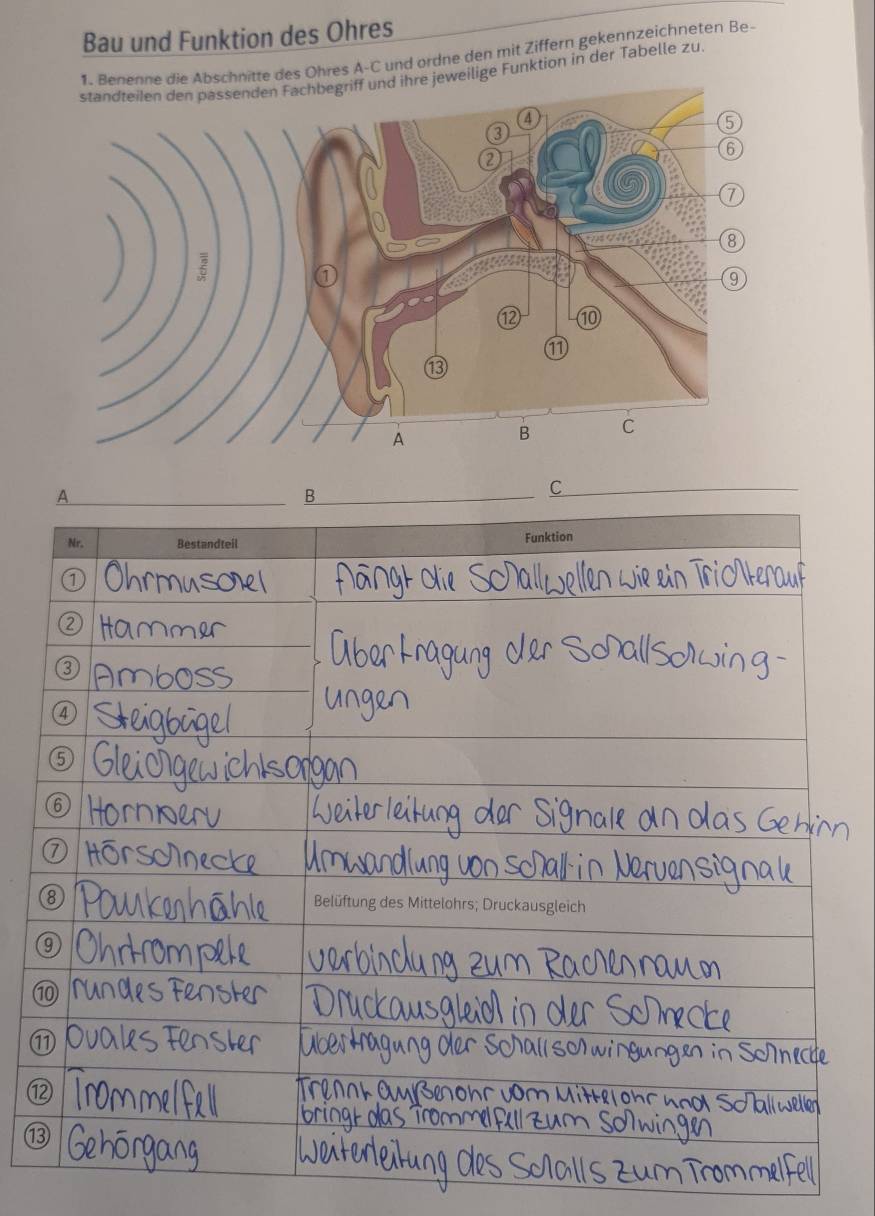 Bau und Funktion des Ohres
1. Benenne die Abschnitte des Ohres A-C und ordne den mit Ziffern gekennzeichneten Be-
standteilen den passenden Fachbegriff und ihre jeweilige Funktion in der Tabelle zu.
4
3
5
2
6
7
8
Schall
1
9
12
10
11
13
A
B
C
A
B
C
Nr. Bestandteil Funktion
1 Ohrmuschel fängt die Schallwellen wie ein Trichter auf
2 Hammer
Übertragung der Schallschwing-
3 Amboss
ungen
4 Steigbügel
5 Gleichgewichtsorgan
6 Hörnerv Weiterleitung der Signale an das Gehirn
7 Hörschnecke Umwandlung von Schall in Nervensignale
8 Paukenhöhle Belüftung des Mittelohrs; Druckausgleich
9 Ohrtrompete Verbindung zum Rachenraum
10 rundes Fenster Druckausgleich in der Schnecke
11 Ovales Fenster Übertragung der Schallschwingungen in Schnecke
12 Trommelfell Trennt außenohr vom Mittelohr und Schallwellen
bringt das Trommelfell zum Schwingen
13 Gehörgang Weiterleitung des Schalls zum Trommelfell